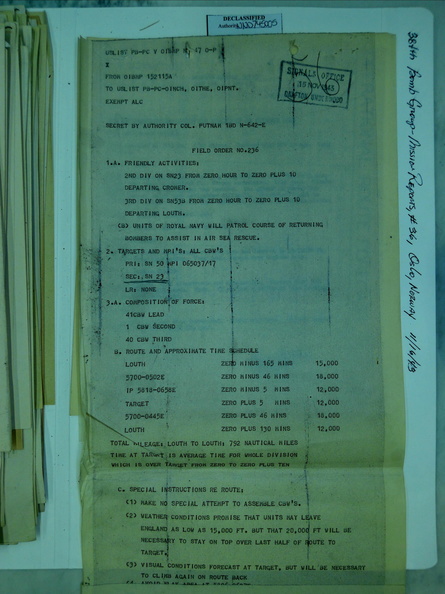 DECLASSIFIED
Authority NND745005
384th Bomb Group - Mission Reports, # 36, Oslo, Norway 11/16/43
SIGNALS OFFICE
NOV 1943
GRAFTON UNDERWOOD
FROM O1BNP 152115A
TO URLIST PW-PC-OINCH, OITHE, OIPNT.
EXEMPT ALC
SECRET BY AUTHORITY COL. PUTNAM 1WD H-642-E
FIELD ORDER NO.236
1.A. FRIENDLY ACTIVITIES:
2ND DIV ON SN23 FROM ZERO HOUR TO ZERO PLUS 10
DEPARTING CROMER.
3RD DIV ON SN538 FROM ZERO HOUR TO ZERO PLUS 10
DEPARTING LOUTH.
UNITS OF ROYAL NAVY WILL PATROL COURSE OF RETURNING
BOMBERS TO ASSIST IN AIR SEA RESCUE.
2. TARGETS AND MPI'S; ALL CBW'S
PRI: SN 50 MPI 065037/17
SEC: SN 23
LR: NONE
3.A. COMPOSITION OF FORCE:
41CBW LEAD
1 CBW SECOND
40 CBW THIRD
B. ROUTE AND APPROXIMATE TIME SCHEDULE
LOUTH ZERO MINUS 165 MINS 15,000
5700-0502E ZERO MINUS 46 MINS 18,000
IP 5818-0658E ZERO MINUS 5 MINS 12,000
TARGET ZERO PLUS 5 MINS 12,000
5700-0445E ZERO PLUS 46 MINS 18,000
LOUTH ZERO PLUS 130 MINS 12,000
TOTAL MILEAGE; LOUTH TO LOUTH: 792 NAUTICAL MILES
TIME AT TARGET IS AVERAGE TIME FOR WHOLE DIVISION
WHICH IS OVER TARGET FROM ZERO TO ZERO PLUS TEN
C. SPECIAL INSTRUCTIONS RE ROUTE:
(1) MAKE NO SPECIAL ATTEMPT TO ASSEMBLE CBW'S.
(2) WEATHER CONDITIONS PROMISE THAT UNITS MAY LEAVE
ENGLAND AS LOW AS 15,000 FT. BUT THAT 20,000 FT WILL BE
NECESSARY TO STAY ON TOP OVER LAST HALF OF ROUTE TO
TARGET.
(3) VISUAL CONDITIONS FORECAST AT TARGET, BUT WILL BE NECESSARY
TO CLIMB AGAIN ON ROUTE BACK.